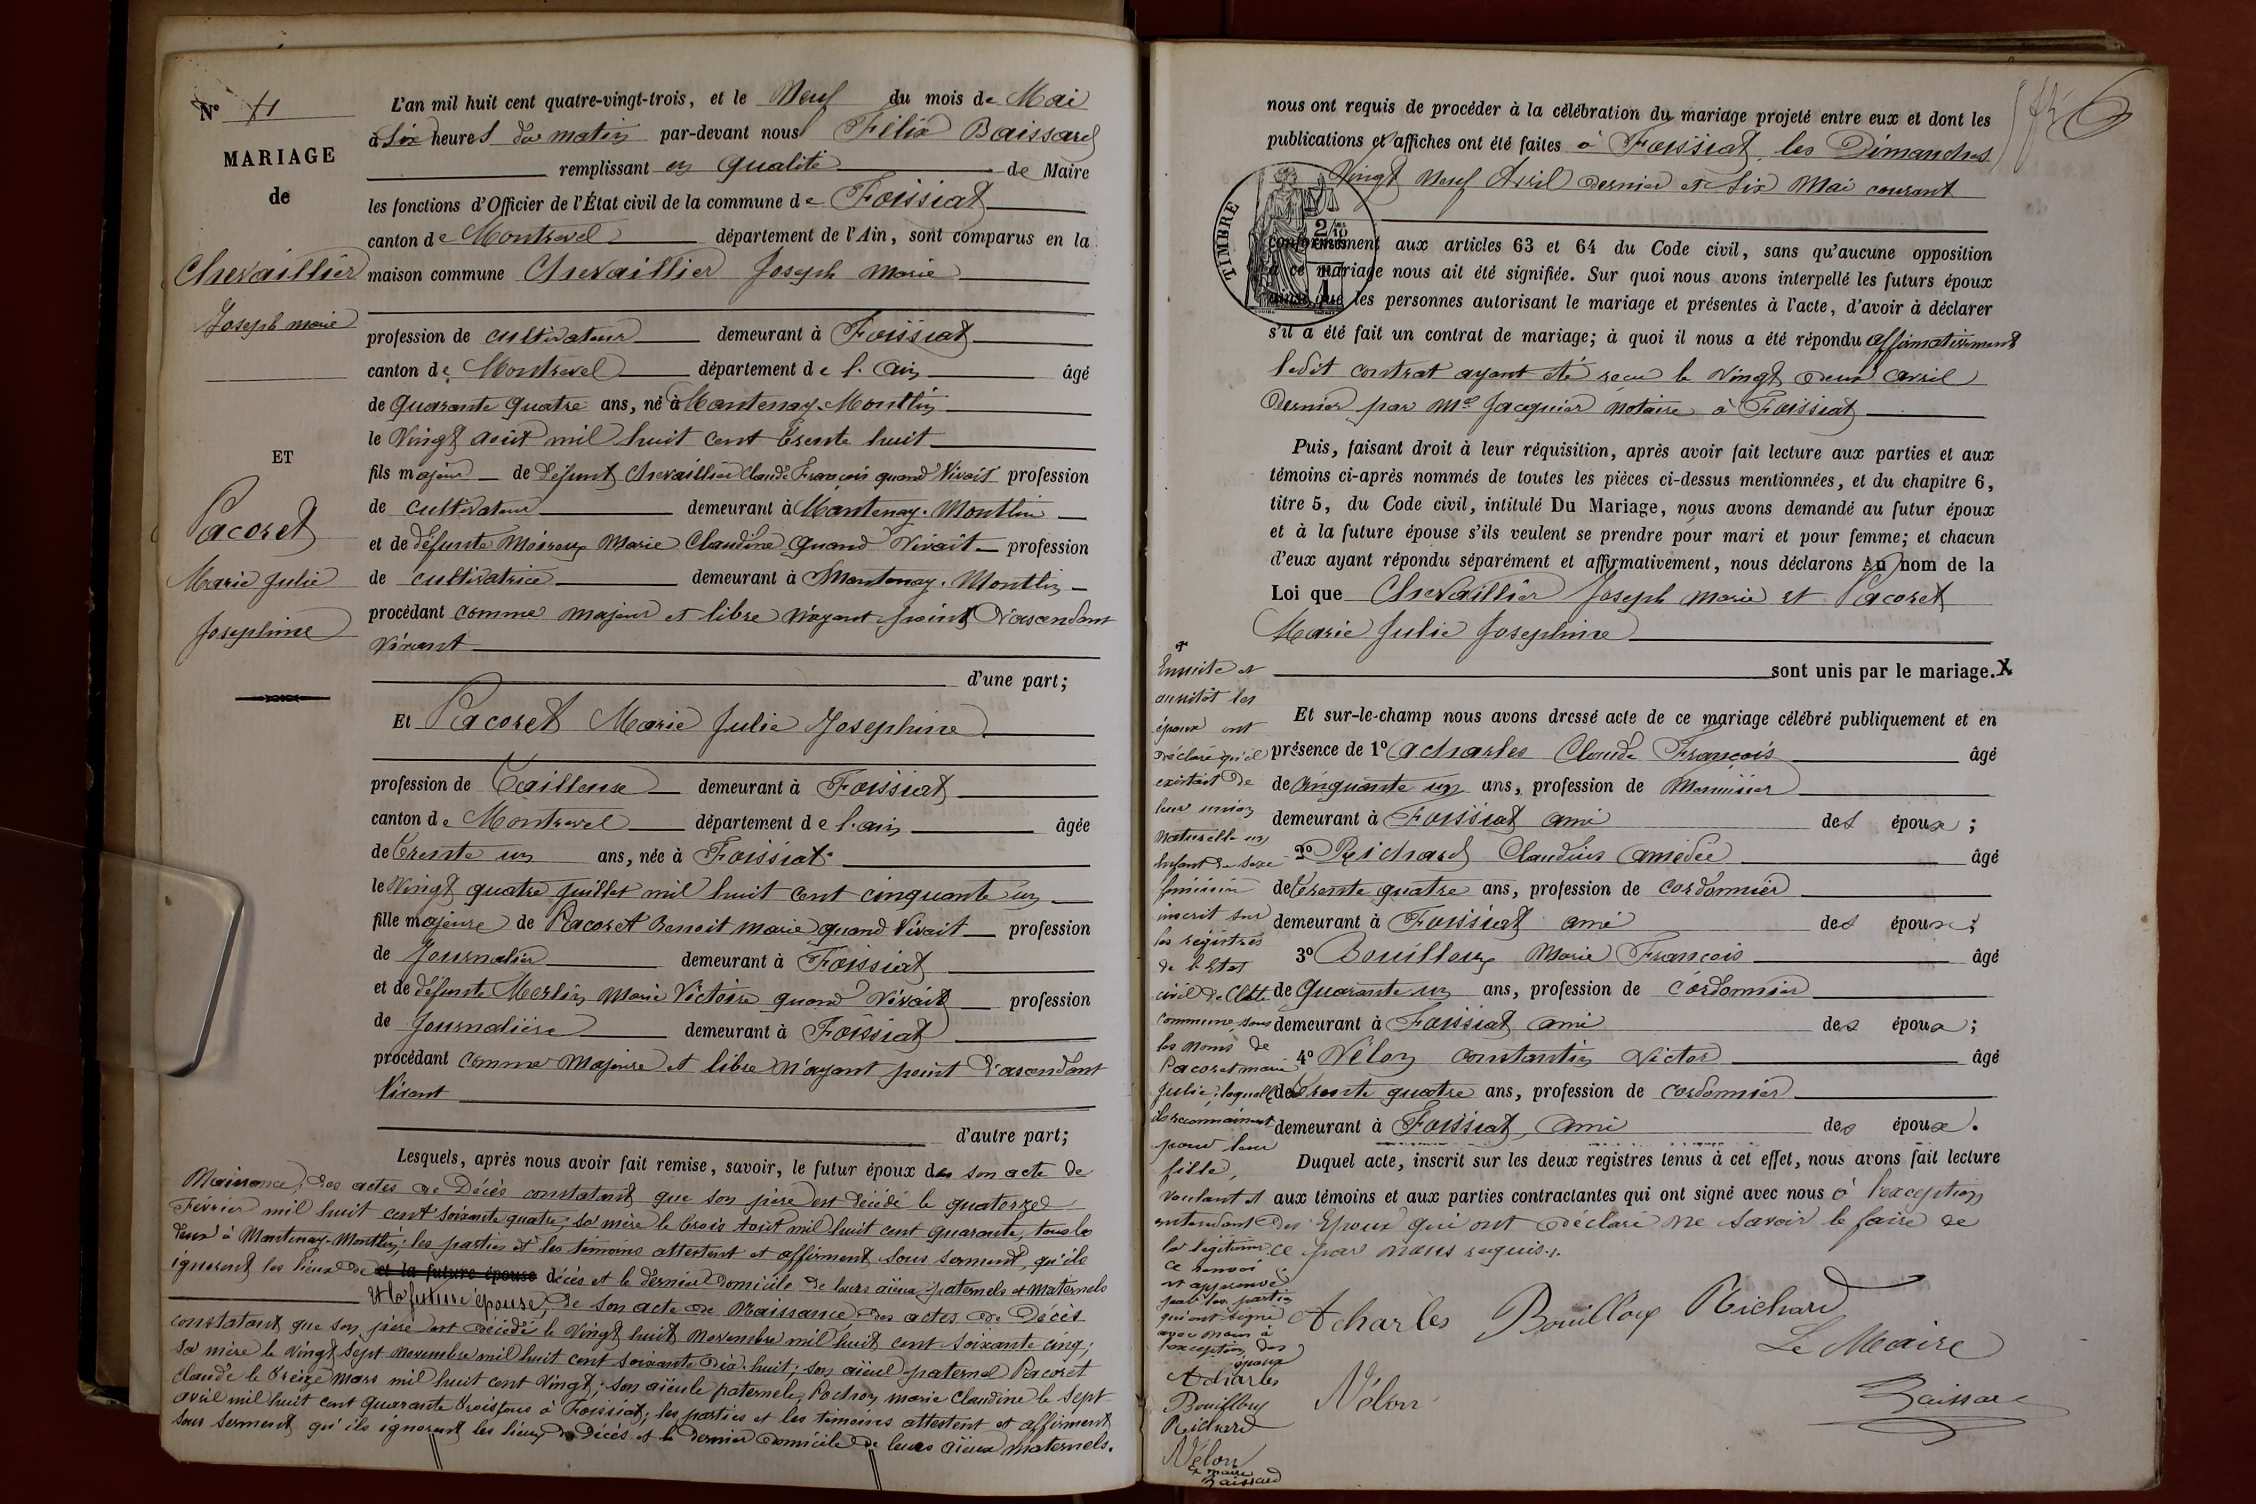 N° 11
MARIAGE
de
Chevaillier
Joseph marie
ET
Pacoret
Marie Julie
Josephine
L'an mil huit cent quatre-vingt-trois, et le Neuf du mois de Mai
à Six heures du matin par-devant nous Félix Baissard
remplissant en qualité de Maire
les fonctions d'Officier de l'État civil de la commune de Foissiat
canton de Montrevel département de l'Ain, sont comparus en la
maison commune Chevaillier Joseph Marie
profession de cultivateur demeurant à Foissiat
canton de Montrevel département de l'Ain âgé
de Quarante quatre ans, né à Mantenay-Montlin
le Vingt août mil huit cent trente huit
fils majeur de défunt Chevaillier Claude François quand Vivait profession
de cultivateur demeurant à Mantenay-Montlin
et de défunte Moiroux Marie Claudine quand Vivait profession
de cultivatrice demeurant à Mantenay-Montlin
procédant comme majeur et libre n'ayant point d'ascendant
Vivant
d'une part;
Et Pacoret Marie Julie Josephine
profession de Tailleuse demeurant à Foissiat
canton de Montrevel département de l'ain âgée
de trente un ans, née à Foissiat
le Vingt quatre Juillet mil huit cent cinquante un
fille majeure de Pacoret Benoit Marie quand Vivait profession
de Journalier demeurant à Foissiat
et de défunte Merlin Marie Victoire quand Vivait profession
de Journalière demeurant à Foissiat
procédant comme Majeure et libre n'ayant point d'ascendant
Vivant
d'autre part;
Lesquels, après nous avoir fait remise, savoir, le futur époux de son acte de
Naissance, des actes de Décès constatant que son père est décédé le quatorze
Février mil huit cent soixante quatre; sa mère le trois Août mil huit cent quarante, tous les
deux à Mantenay-Montlin; les parties et les témoins attestent et affirment sous serment, qu'ils
ignorent les lieux de et la future épouse décès et le dernier domicile de leurs aïeux paternels et maternels
et la future épouse, de son acte de Naissance, des actes de Décès
constatant que son père est décédé le Vingt huit Novembre mil huit cent soixante cinq;
sa mère le Vingt sept novembre mil huit cent soixante dix-huit; son aïeul paternel Pacoret
Claude le treize mars mil huit cent Vingt; son aïeule paternelle Pochon marie Claudine le sept
avril mil huit cent quarante trois tous à Foissiat; les parties et les témoins attestent et affirment
sous serment qu'ils ignorent les lieux de Décès et le dernier domicile de leurs aïeux maternels.
nous ont requis de procéder à la célébration du mariage projeté entre eux et dont les
publications et affiches ont été faites à Foissiat, les Dimanches
Vingt Neuf Avril dernier et Six Mai courant
TIMBRE
conformément aux articles 63 et 64 du Code civil, sans qu'aucune opposition
à ce mariage nous ait été signifiée. Sur quoi nous avons interpellé les futurs époux
ainsi que les personnes autorisant le mariage et présentes à l'acte, d'avoir à déclarer
s'il a été fait un contrat de mariage; à quoi il nous a été répondu affirmativement
ledit contrat ayant été reçu le Vingt deux avril
dernier par Me Jacquier notaire à Foissiat
Puis, faisant droit à leur réquisition, après avoir fait lecture aux parties et aux
témoins ci-après nommés de toutes les pièces ci-dessus mentionnées, et du chapitre 6,
titre 5, du Code civil, intitulé Du Mariage, nous avons demandé au futur époux
et à la future épouse s'ils veulent se prendre pour mari et pour femme; et chacun
d'eux ayant répondu séparément et affirmativement, nous déclarons Au nom de la
Loi que Chevaillier Joseph Marie et Pacoret
Marie Julie Josephine
sont unis par le mariage. X
Et sur-le-champ nous avons dressé acte de ce mariage célébré publiquement et en
présence de 1° Acharles Claude François âgé
de Cinquante un ans, profession de Menuisier
demeurant à Foissiat ami des époux;
2° Richard Claudius Amédée âgé
de trente quatre ans, profession de cordonnier
demeurant à Foissiat ami des époux;
3° Bouilloux Marie François âgé
de Quarante un ans, profession de cordonnier
demeurant à Foissiat ami des époux;
4° Vélon constantin Victor âgé
de trente quatre ans, profession de cordonnier
demeurant à Foissiat, ami des époux.
Duquel acte, inscrit sur les deux registres tenus à cet effet, nous avons fait lecture
aux témoins et aux parties contractantes qui ont signé avec nous à l'exception
des Epoux qui ont déclaré ne savoir le faire de
ce par nous requis.
Acharles Bouilloux Richard
Le Maire
Vélon
Baissard
Ensuite et
aussitôt les
époux ont
déclaré qu'il
existait de
leur union
naturelle un
enfant de sexe
féminin
inscrit sur
les registres
de l'Etat
civil de cette
commune sous
les noms de
Pacoret marie
Julie; laquelle
ils reconnaissent
pour leur
fille,
voulant et
entendant
la légitimer
ce renvoi
est approuvé
par les parties
qui ont signé
avec nous à
l'exception des
époux
Acharles
Bouilloux
Richard
Vélon
Le maire
Baissard